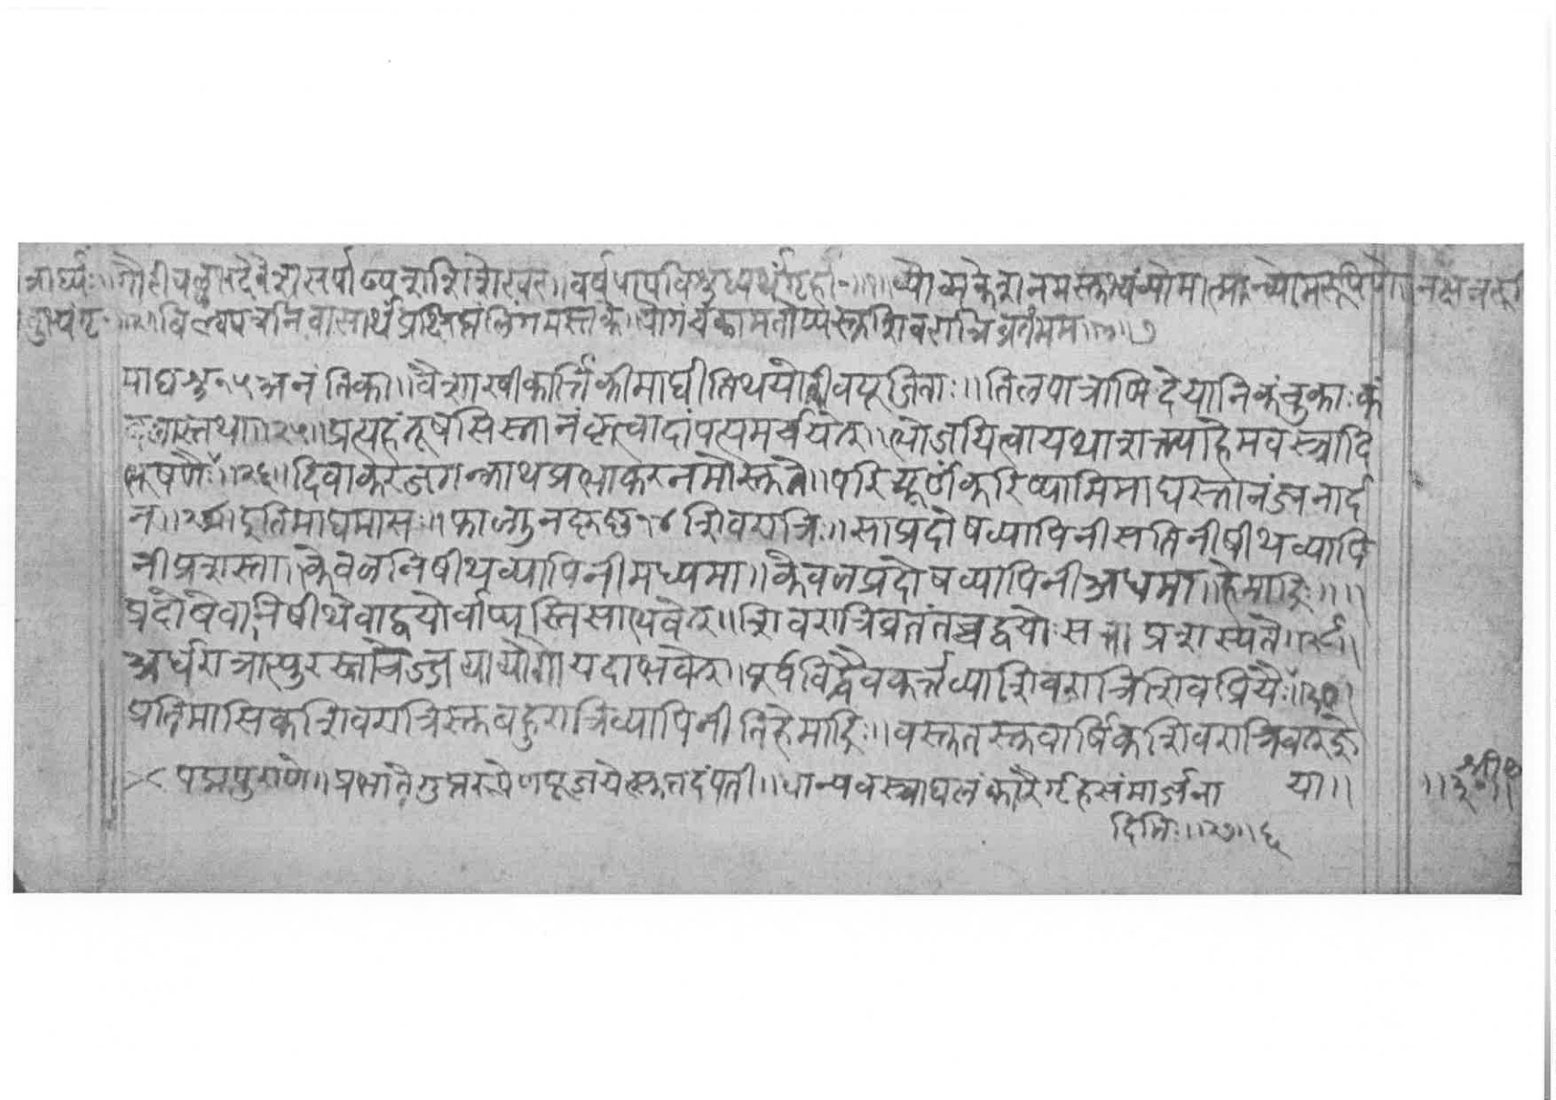 त्रार्घ्यः ॥ गौरीवल्लभदेवेश सर्पाढ्य शशिशेखर ॥ वर्षपापविशुध्यर्थं गृहा॰ ॥१॥ व्योमकेश नमस्तुभ्यं व्योमात्मा व्योमरूपिणे ॥ नक्षत्ररू
तुभ्यं गृ॰ ॥२॥ बिल्वपत्र निवासार्थं लिंगमस्तके ॥ शिवरात्रिव्रतं मम ॥३॥७
माघशु॰५ अनंतिका ॥ वैशाखीकार्त्तिकीमाघी तिथयोतीवपूजिताः ॥ तिलपात्राणि देयानि कंचुकाः कं
बलास्तथा ॥२५॥ प्रत्यहं तूषसि स्नानं कृत्वा दांपत्यमर्चयेत् ॥ भोजयित्वा यथाशक्त्या हेमवस्त्रादि
भूषणैः ॥२६॥ दिवाकर जगन्नाथ प्रभाकर नमोस्तुते ॥ परिपूर्णं करिष्यामि माघस्नानं जनार्द
न ॥ इति माघमासः ॥ फाल्गुनकृष्ण १४ शिवरात्रिः ॥ सा प्रदोषव्यापिनी सति नीषीथव्यापि
नी प्रशस्ता ॥ केवलनिषीथव्यापिनी मध्यमा ॥ केवलप्रदोषव्यापिनी अधमा ॥ हेमाद्रिः ॥॥
प्रदोषे वा निषीथे वा द्वयोर्वाप्यस्ति सा भवेत् ॥ शिवरात्रिव्रतं तच्च द्वयोः सत्ता प्रशस्यते ॥२८॥
अर्धरात्रात्पुरस्ताच्चेज्जयायोगो यदा भवेत् ॥ पूर्वविद्धैव कर्त्तव्या शिवरात्रि शिवप्रियैः ॥
प्रतिमासिकशिवरात्रिस्तु बहुरात्रिव्यापिनीति हेमाद्रिः ॥ वस्तुतस्तु वार्षिकशिवरात्रिवत् ज्ञे
पद्मपुराणे ॥ प्रभाते गुप्तरूपेण पूजयेत्स्तुत दंपती ॥ धान्यवस्त्राद्यलंकारैर्गृहसंमार्जना या ॥
दिभिः ॥२७॥६